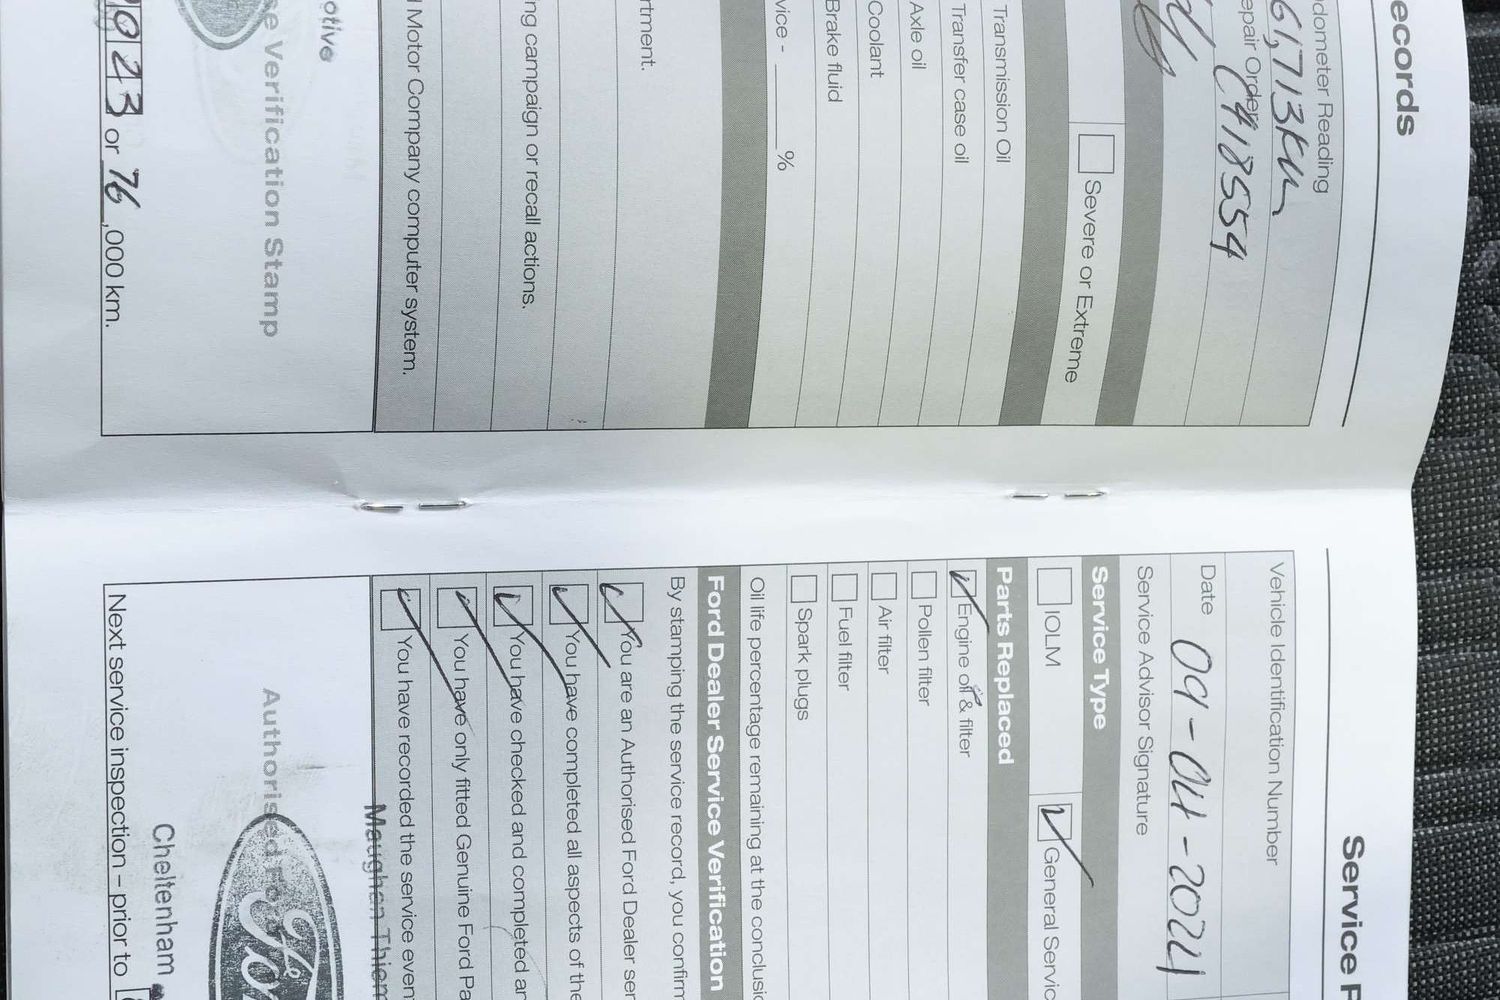 ecords
dometer Reading
61,713km
epair Order
C418554
Severe or Extreme
Transmission Oil
Transfer case oil
Axle oil
Coolant
Brake fluid
vice - ______%
rtment.
ng campaign or recall actions.
Motor Company computer system.
otive
e Verification Stamp
2023 or 76 ,000 km.
Service R
Vehicle Identification Number
Date 09-04-2024
Service Advisor Signature
Service Type
IOLM
General Servic
Parts Replaced
Engine oil & filter
Pollen filter
Air filter
Fuel filter
Spark plugs
Oil life percentage remaining at the conclusi
Ford Dealer Service Verification
By stamping the service record, you confirm
You are an Authorised Ford Dealer ser
You have completed all aspects of the
You have checked and completed an
You have only fitted Genuine Ford Pa
You have recorded the service even
Maughan Thiem
Authorised Fo
Ford
Cheltenham
Next service inspection – prior to